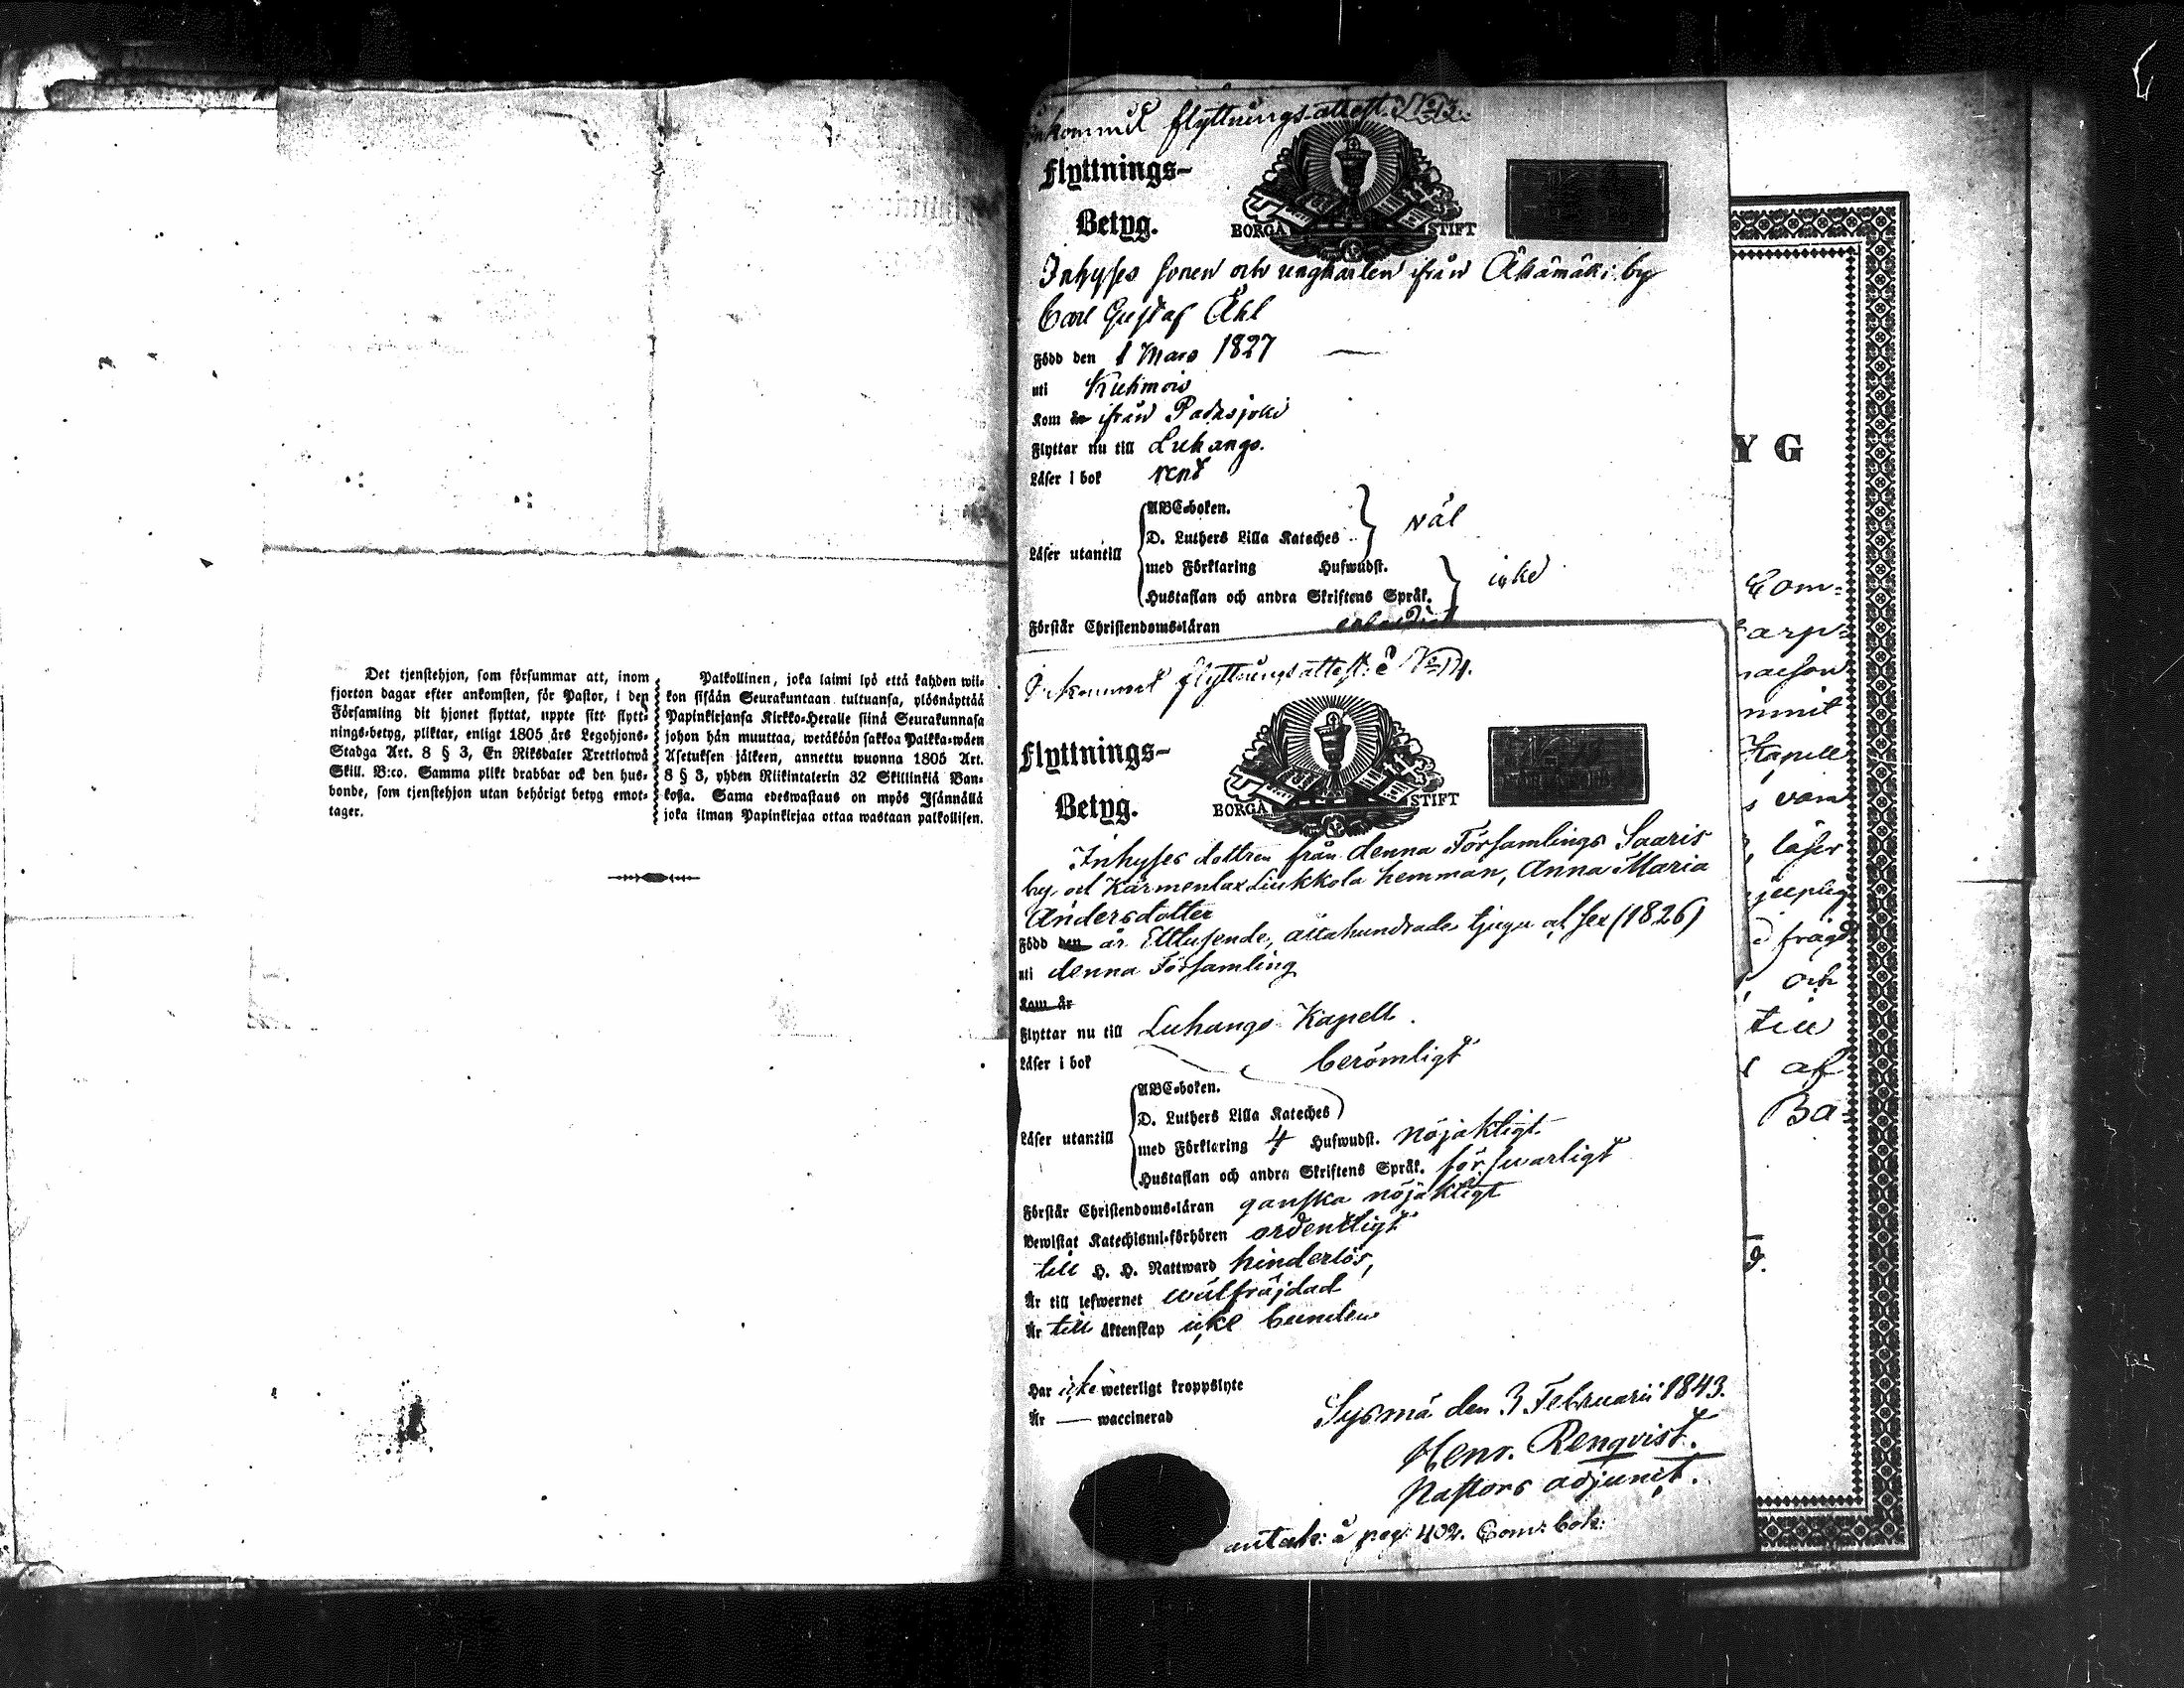 Det tjenstehjon, som försummar att, inom
fjorton dagar efter ankomsten, för Pastor, i den
Församling dit hjonet flyttat, uppte sitt flytt-
nings-betyg, pliktar, enligt 1805 års Legohjons-
Stadga Art. 8 § 3, En Riksdaler Trettiotwå
Skill. B:co. Samma plikt drabbar ock den hus-
bonde, som tjenstehjon utan behörigt betyg emot-
tager.
Palkollinen, joka laimi lyö että kahden wii-
kon sisään Seurakuntaan tultuansa, ylösnäyttää
Papinkirjansa Kirkko-Heralle siinä Seurakunnasa
johon hän muuttaa, wetäköön sakkoa Palkka-wäen
Asetuksen jälkeen, annettu wuonna 1805 Art.
8 § 3, yhden Riikintalerin 32 Skillinkiä Ban-
kosa. Sama edeswastaus on myös Isännällä
joka ilman Papinkirjaa ottaa wastaan palkollisen.
Inkommit flyttningsattest.
Flyttnings-
Betyg.
BORGÅ STIFT
Inhyses sonen och ungkarlen ifrån by
Carl Gustaf Åhl
Född den 1 Mars 1827
uti Kuhmois
Kom år ifrån Padasjoki
Flyttar nu till Luhango.
Läser i bok rent
Läser utantill
ABC-boken.
D. Luthers Lilla Kateches wäl
med Förklaring Hufwudst.
Hustaflan och andra Skriftens Språk. icke
Förstår Christendoms-läran
Inkommit flyttningsattest: No 14.
Flyttnings-
Betyg.
BORGÅ STIFT
Inhyses dottren från denna Församlings Saaris
by och Kärmenlax Liukkola hemman, Anna Maria
Andersdotter
Född den år Ettusende, åttahundrade tjugu och sex (1826)
uti denna Församling
Kom år
Flyttar nu till Luhango Kapell.
Läser i bok berömligt
Läser utantill
ABC-boken.
D. Luthers Lilla Kateches
med Förklaring 4 Hufwudst. nöjaktigt
Hustaflan och andra Skriftens Språk. förswarligt
Förstår Christendoms-läran ganska nöjaktigt
Bewistat Katechismi-förhören ordentligt
till H. H. Nattward hinderlös,
Är till lefwernet wälfräjdad
Är till äktenskap icke bunden
Har icke weterligt kroppslyte
Är — waccinerad
Sysmä den 3 Februarii 1843.
Henr. Renqvist.
Pastors adjunct.
anteckn: å pag: 402. Com: bok:
YG
Com-
Kapell
läser
och
till
af
Ba-